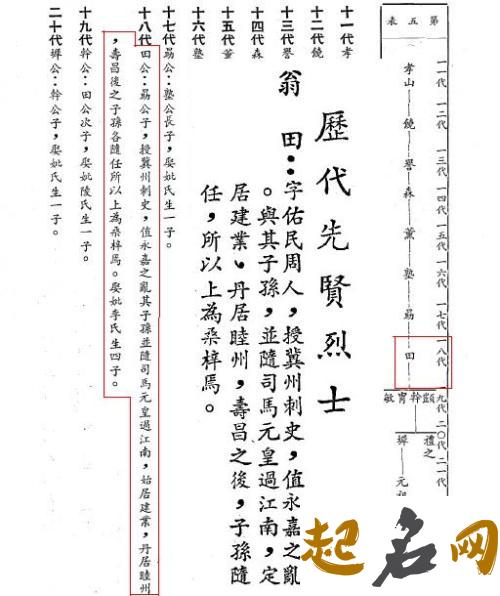 第五表
一一代 一二代 一三代 一四代 一五代 一六代 一七代 一八代 一九代 二〇代 二一代
孝山 饒 譽 森 薰 塾 昜 田
顯 幹 冑 敏
禮之
墀
歷代先賢烈士
翁田：字佑民周人，授冀州刺史，值永嘉之亂
。與其子孫，並隨司馬元皇過江南，定
居建業、丹居睦州，壽昌之後，子孫隨
任，所以上為桑梓焉。
十一代孝
十二代饒
十三代譽
十四代森
十五代薰
十六代塾
十七代昜公：塾公長子，娶妣氏生一子。
十八代田公：昜公子，授冀州刺史，值永嘉之亂其子孫並隨司馬元皇過江南，始居建業，丹居睦州
，壽昌後之子孫各隨任所以上為桑梓焉。娶妣李氏生四子。
十九代幹公：田公次子，娶妣陵氏生一子。
二十代墀公：幹公子，娶妣氏生一子。
起名网